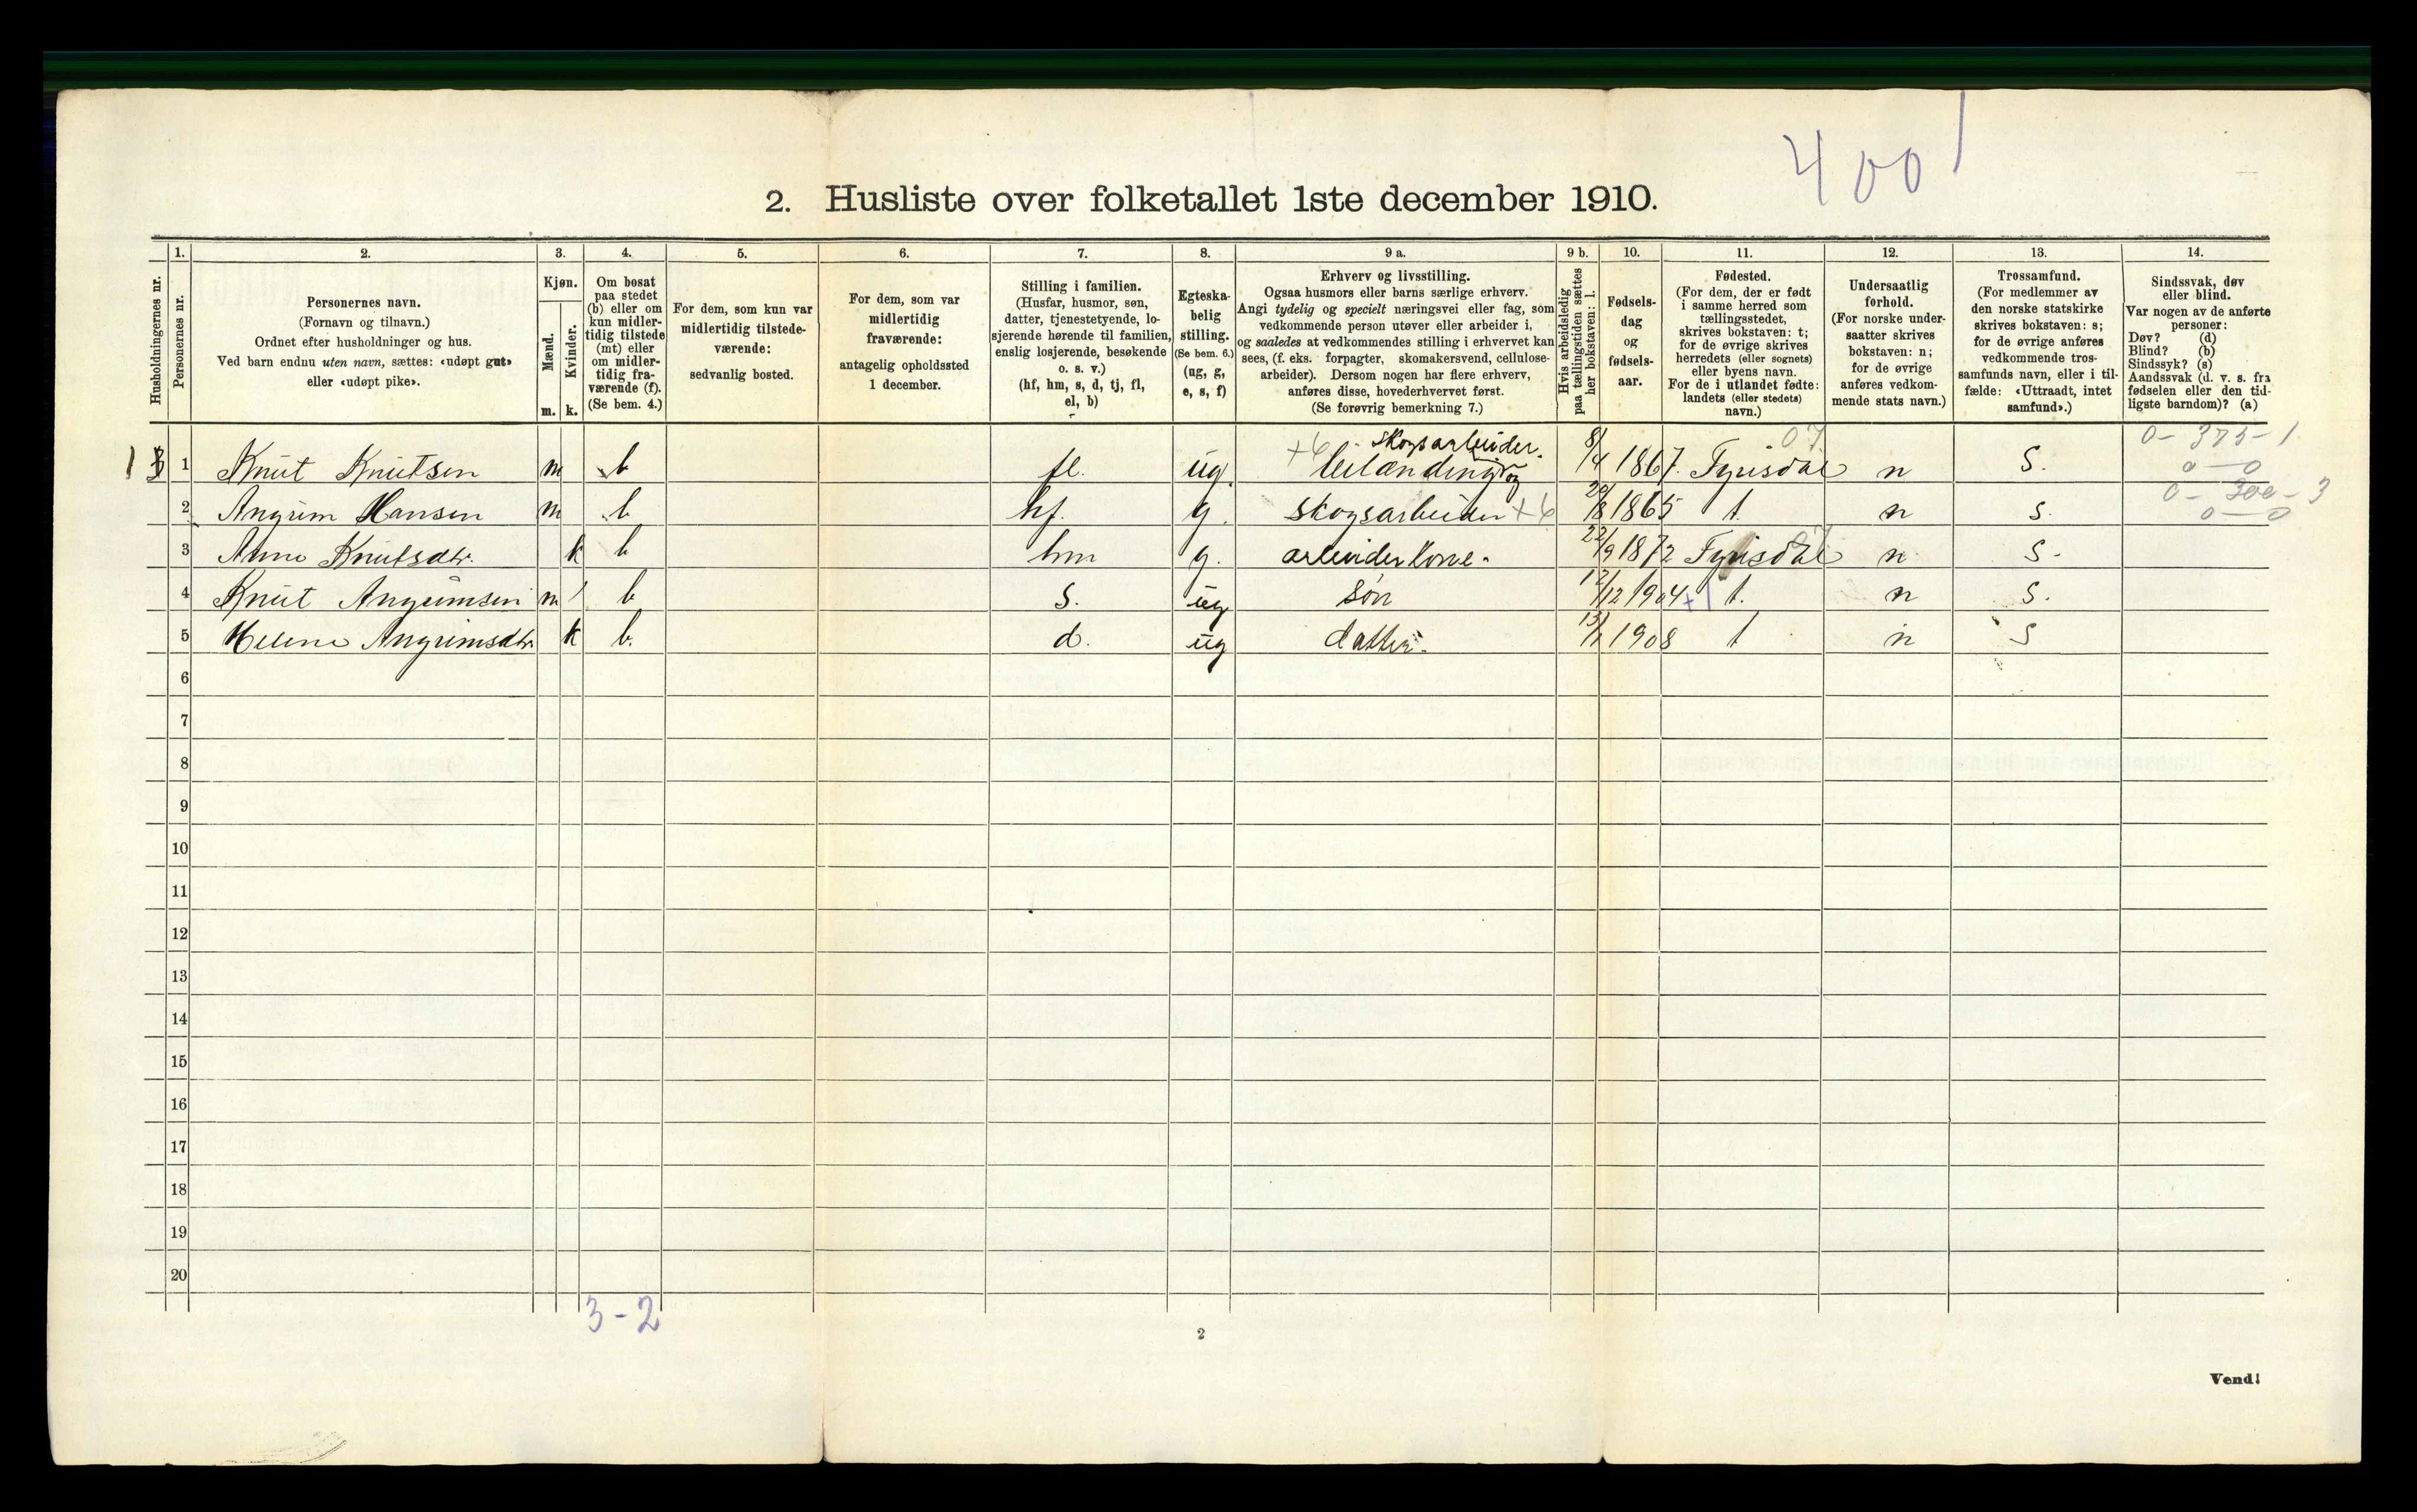 4001
2. Husliste over folketallet 1ste december 1910.
Husholdningernes nr.
1.
Personernes nr.
2.
Personernes navn.
(Fornavn og tilnavn.)
Ordnet efter husholdninger og hus.
Ved barn endnu uten navn, sættes: «udøpt gut»
eller «udøpt pike».
3.
Kjøn.
Mænd.
m.
Kvinder.
k.
4.
Om bosat
paa stedet
(b) eller om
kun midler-
tidig tilstede
(mt) eller
om midler-
tidig fra-
værende (f).
(Se bem. 4.)
5.
For dem, som kun var
midlertidig tilstede-
værende:
sedvanlig bosted.
6.
For dem, som var
midlertidig
fraværende:
antagelig opholdssted
1 december.
7.
Stilling i familien.
(Husfar, husmor, søn,
datter, tjenestetyende, lo-
sjerende hørende til familien,
enslig losjerende, besøkende
o. s. v.)
(hf, hm, s, d, tj, fl,
el, b)
8.
Egteska-
belig
stilling.
(Se bem. 6.)
(ug, g,
e, s, f)
9 a.
Erhverv og livsstilling.
Ogsaa husmors eller barns særlige erhverv.
Angi tydelig og specielt næringsvei eller fag, som
vedkommende person utøver eller arbeider i,
og saaledes at vedkommendes stilling i erhvervet kan
sees, (f. eks. forpagter, skomakersvend, cellulose-
arbeider). Dersom nogen har flere erhverv,
anføres disse, hovederhvervet først.
(Se forøvrig bemerkning 7.)
9 b.
Hvis arbeidsledig
paa tællingstiden sættes
her bokstaven: l.
10.
Fødsels-
dag
og
fødsels-
aar.
11.
Fødested.
(For dem, der er født
i samme herred som
tællingsstedet,
skrives bokstaven: t;
for de øvrige skrives
herredets (eller sognets)
eller byens navn.
For de i utlandet fødte:
landets (eller stedets)
navn.)
12.
Undersaatlig
forhold.
(For norske under-
saatter skrives
bokstaven: n;
for de øvrige
anføres vedkom-
mende stats navn.)
13.
Trossamfund.
(For medlemmer av
den norske statskirke
skrives bokstaven: s;
for de øvrige anføres
vedkommende tros-
samfunds navn, eller i til-
fælde: «Uttraadt, intet
samfund».)
14.
Sindssvak, døv
eller blind.
Var nogen av de anførte
personer:
Døv? (d)
Blind? (b)
Sindssyk? (s)
Aandssvak (d. v. s. fra
fødselen eller den tid-
ligste barndom)? (a)
+6 skogsarbeider. 07 0-375-1
1 1 Knut Knutsen m b fl. ug. leilænding og 8/4 1867. Fyrisdal n S. 0-0
0-300-3
2 Angrim Hansen m b hf. g. skogsarbeider +6 20/8 1865 t. n s. 0-0
07
3 Anne Knutsdtr. k b hm g. arbeiderkone. 22/9 1872 Fyrisdal n S.
4 Knut Angrimsen m b s. ug søn 17/12 1904 +1 t. n S.
5 Helene Angrimsdtr. k b. d. ug datter. 13/1 1908 t n S
6
7
8
9
10
11
12
13
14
15
16
17
18
19
20
3-2
2
Vend!